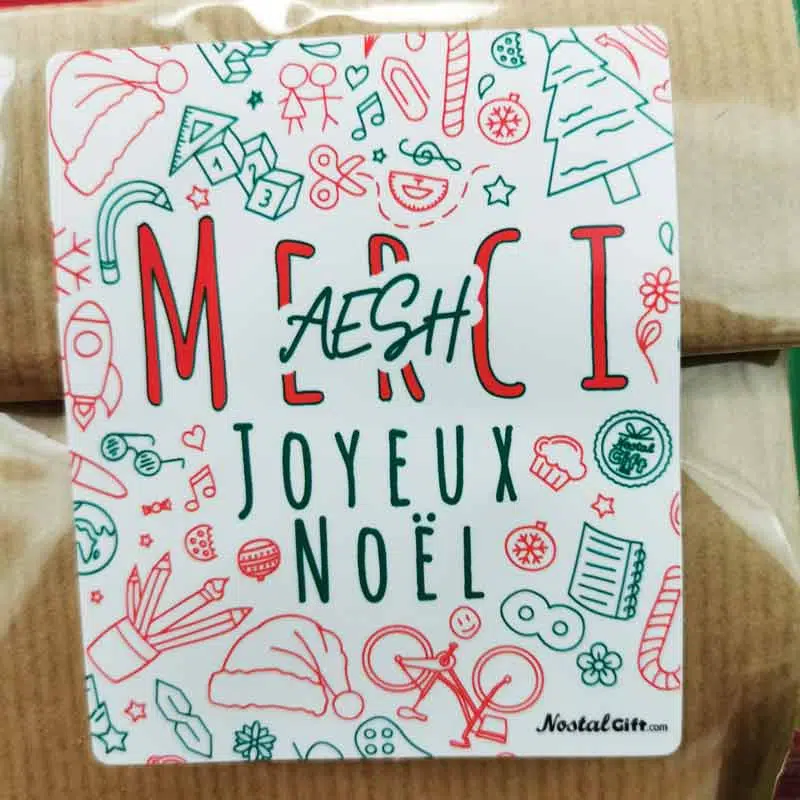 1 2
3
MERCI
AESH
JOYEUX
Nostal
Gift
NOËL
NostalGift.com